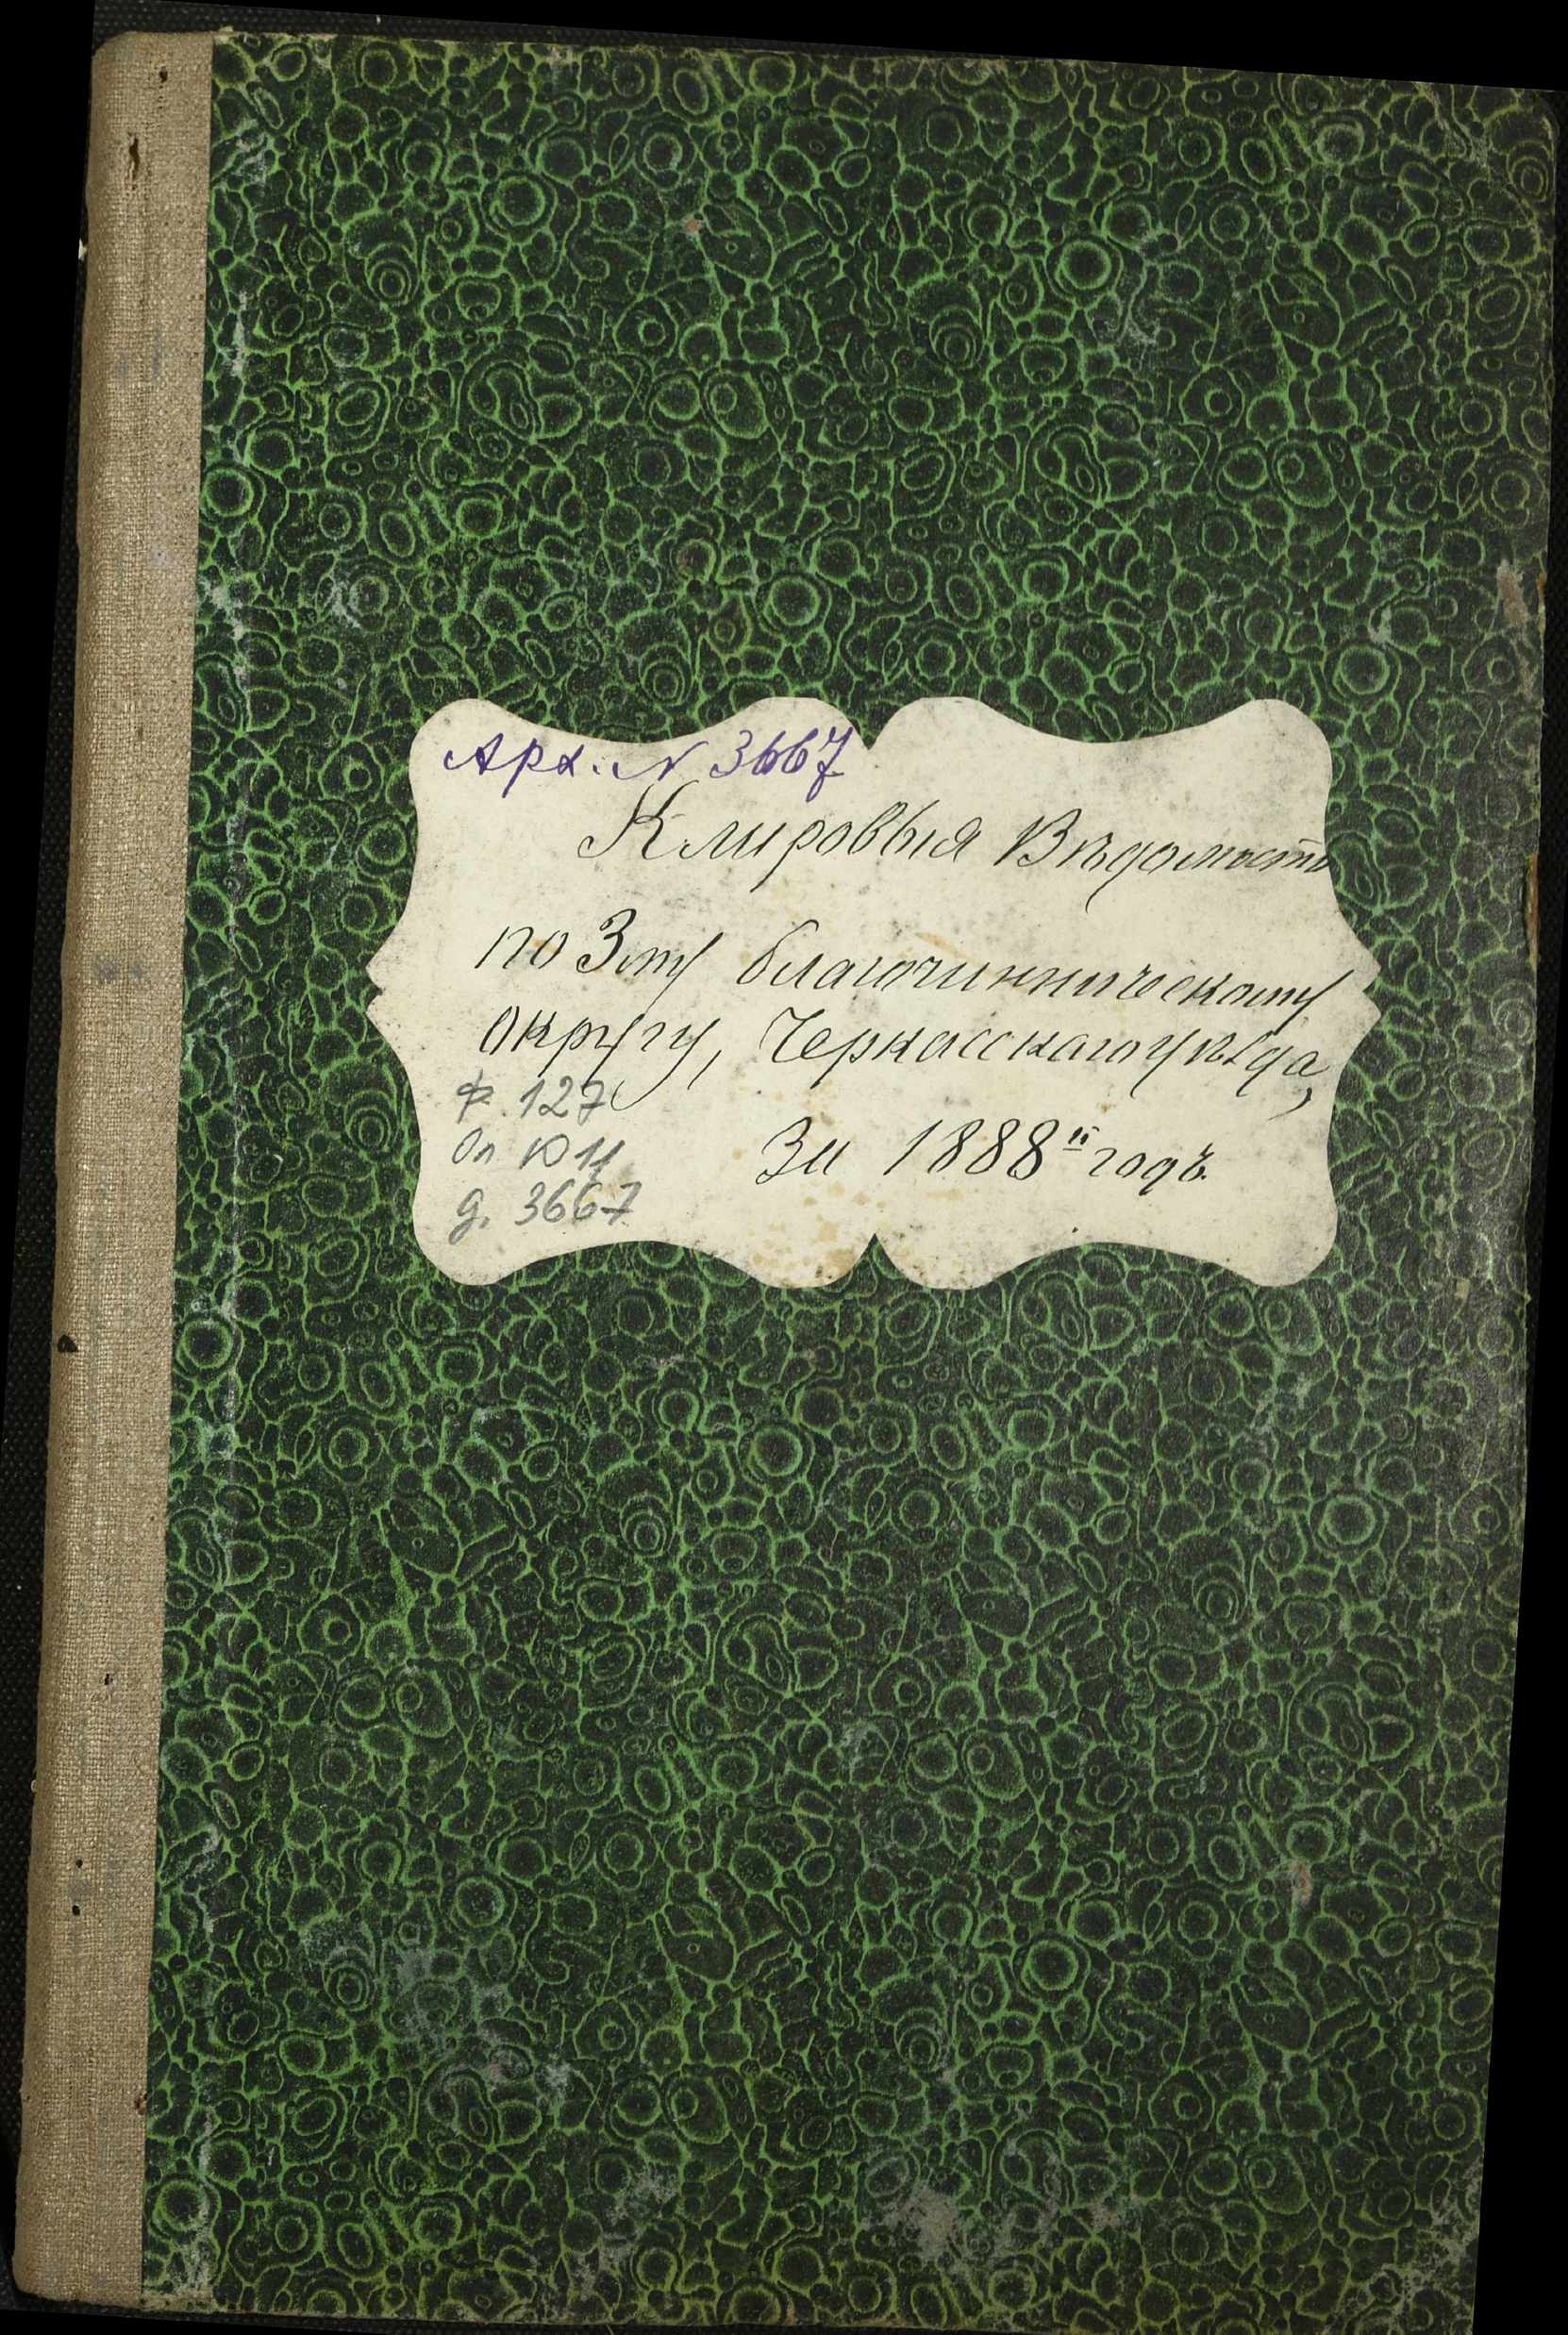 Арх. № 3667
Клировыя Вѣдомости
по 3му благочинническому
округу, Черкасскаго уѣзда,
За 1888й годъ.
ф. 127
Оп 1011
д. 3667